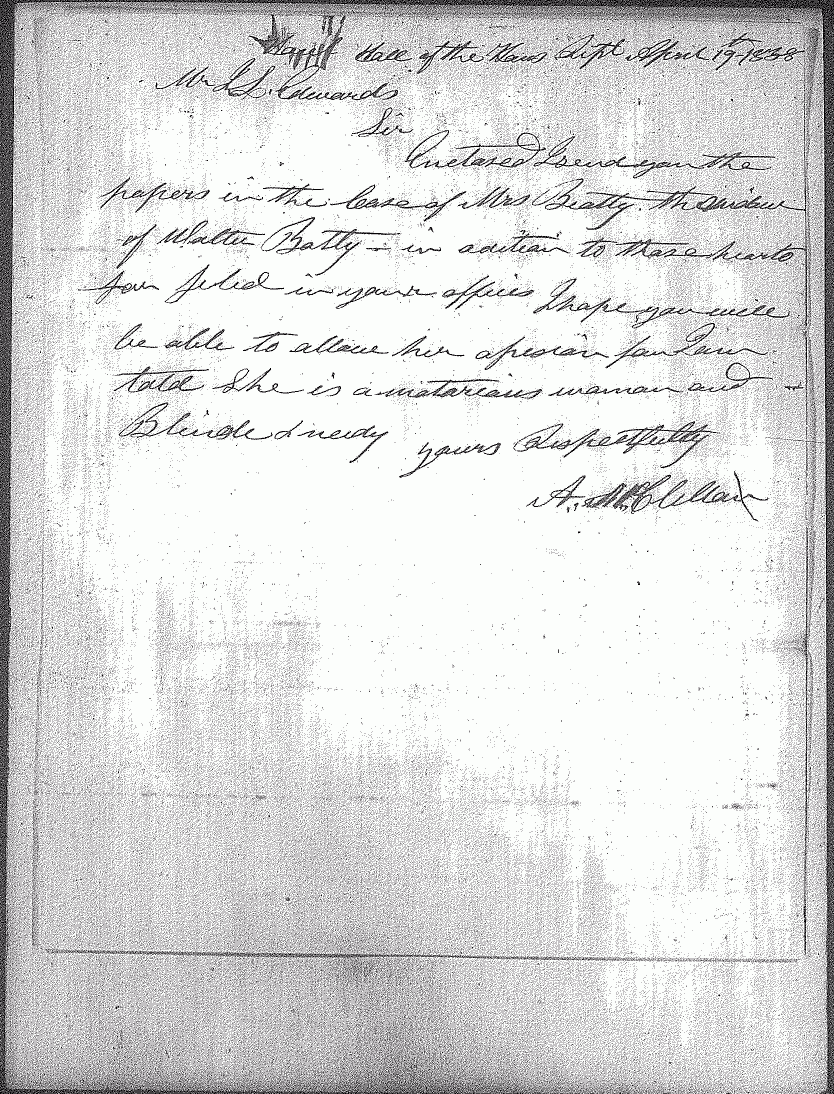 Hall of the Hous Rept April 19th 1838
Mr J. L. Edwards
Sir
Enclosed I send you the
papers in the Case of Mrs Beatty. the widow
of Walter Batty - in adition to those hearto
for filed in your offices I hope you will
be able to allow her a pesion for I am
told She is a notorious woman and
Blinde & needy yours Respectfully
A. McClellan